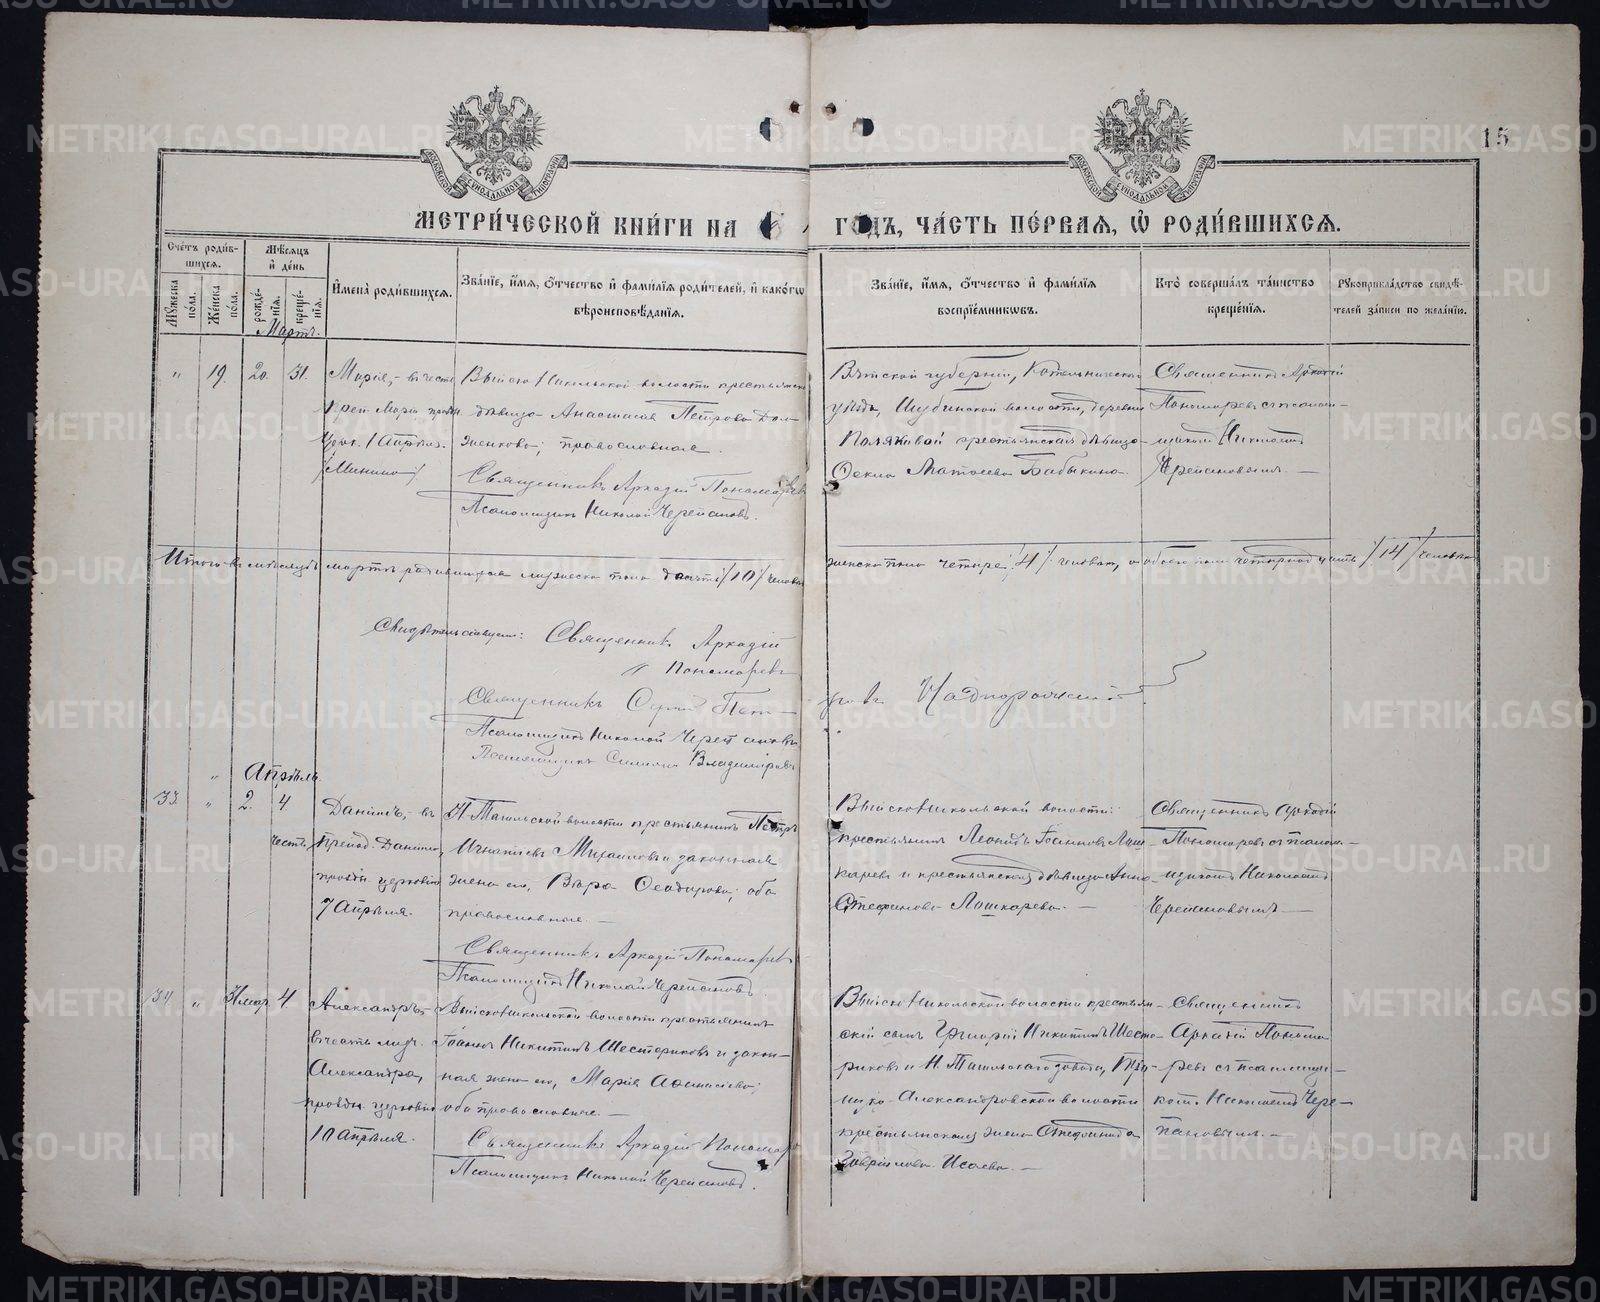 15
МЕТРИ́ЧЕСКОЙ КНИ́ГИ НА
ГО́ДЪ, ЧА́СТЬ ПЕ́РВАѦ, Ѽ РОДИ́ВШИХСѦ.
Сче́тъ роди́в-
шихсѧ.
Мꙋжеска
по́ла.
Же́нска
по́ла.
Мѣ́сѧцъ
и҆ де́нь
рожде́-
нїѧ.
креще́-
нїѧ.
И҆мена̀ роди́вшихсѧ.
Зва́нїе, и҆́мѧ, ѻ҆́тчество и҆ фами́лїѧ роди́телей, и҆ како́гѡ
вѣроисповѣ́данїѧ.
Зва́нїе, и҆́мѧ, ѻ҆́тчество и҆ фами́лїѧ
воспрїе́мникѡвъ.
Кто̀ соверша́лъ та́инство
креще́нїѧ.
Рꙋкоприкла́дство свидѣ́-
телей за́писи по жела́нїю.
Мартъ.
" 19. 20. 31.
Марія,- въ честь
преп. Маріи празд.
1 Апрѣля.
Выйско Никольской волости крестьянская
дѣвица Анастасія Петрова
православная.
Священникъ Аркадій Пономаревъ
Псаломщикъ Николай Черепановъ.
Вятской губерніи, Котельническаго
уѣзда, волости, деревни
крестьянская дѣвица
Матѳеева Бабыкина.
Священникъ Аркадій
Пономаревъ съ псалом-
щикомъ Николаемъ
Черепановымъ. —
Итого въ мѣсяцѣ мартѣ родившихся мужеска пола десять /10/ человѣкъ
женска пола четыре /4/ человѣка, а обоего пола четырнадцать /14/ человѣкъ
Свидѣтельствуемъ: Священникъ Аркадій
Пономаревъ
Священникъ Сергій Пет-
ровъ
Псаломщикъ Николай Черепановъ
Псаломщикъ Симеонъ Владиміровъ
Апрѣль.
33. " 2. 4
Даніилъ,- въ
честь препод. Даніила,
праздн. церковію
7 Апрѣля.
Н-Тагильской волости крестьянинъ Петръ
Игнатіевъ Михаиловъ и законная
жена его, Вѣра Ѳеодорова; оба
православные. —
Священникъ Аркадій Пономаревъ
Псаломщикъ Николай Черепановъ
Выйсконикольской волости:
крестьянинъ Леонидъ Іоанновъ Лош-
каревъ и крестьянская дѣвица Анна
Стефанова Лошкарева. —
Священникъ Аркадій
Пономаревъ съ псалом-
щикомъ Николаемъ
Черепановымъ —
34 " 31 мар. 4
Александръ-
въ честь муч.
Александра,
праздн. церковію
10 Апрѣля.
Выйсконикольской волости крестьянинъ
Іоаннъ Никитинъ Шестериковъ и закон-
ная жена его, Марія Аѳанасіева;
оба православные. —
Священникъ Аркадій Пономаревъ
Псаломщикъ Николай Черепановъ.
Выйсконикольской волости крестьян-
скій сынъ Григорій Никитинъ Шесте-
риковъ и Н. Тагильскаго завода, Тро-
ицко-Александровской волости
крестьянская жена Стефанида
Гавріилова Исаева. —
Священникъ
Аркадій Понома-
ревъ съ псаломщи-
комъ Николаемъ Чере-
пановымъ. —
METRIKI.GASO-URAL.RU